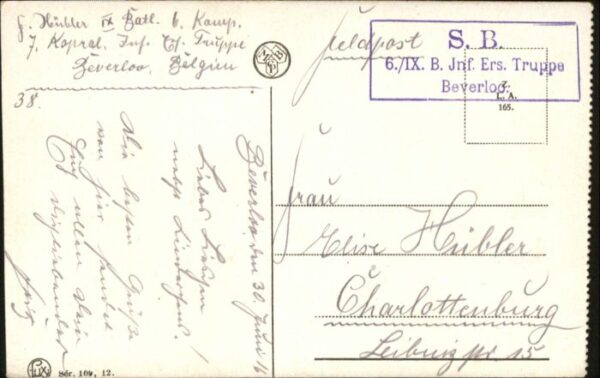 F. Hübler IX Batl. 6. Komp.
7. Kopral. Inf. Ers. Truppe
Beverloo, Belgien
Feldpost
S. B.
6./IX. B. Jnf. Ers. Truppe
Beverloo.
L. A.
165.
38.
Beverloo, den 30. Juni 16
Liebes Lieschen
nebst Kinderchen!
Die besten Grüße
von hier sendet
Euch allen Dein
Dich liebender
Fritz
Frau
Elise Hübler
Charlottenburg
Leibnizstr. 15
Sér. 109, 12.